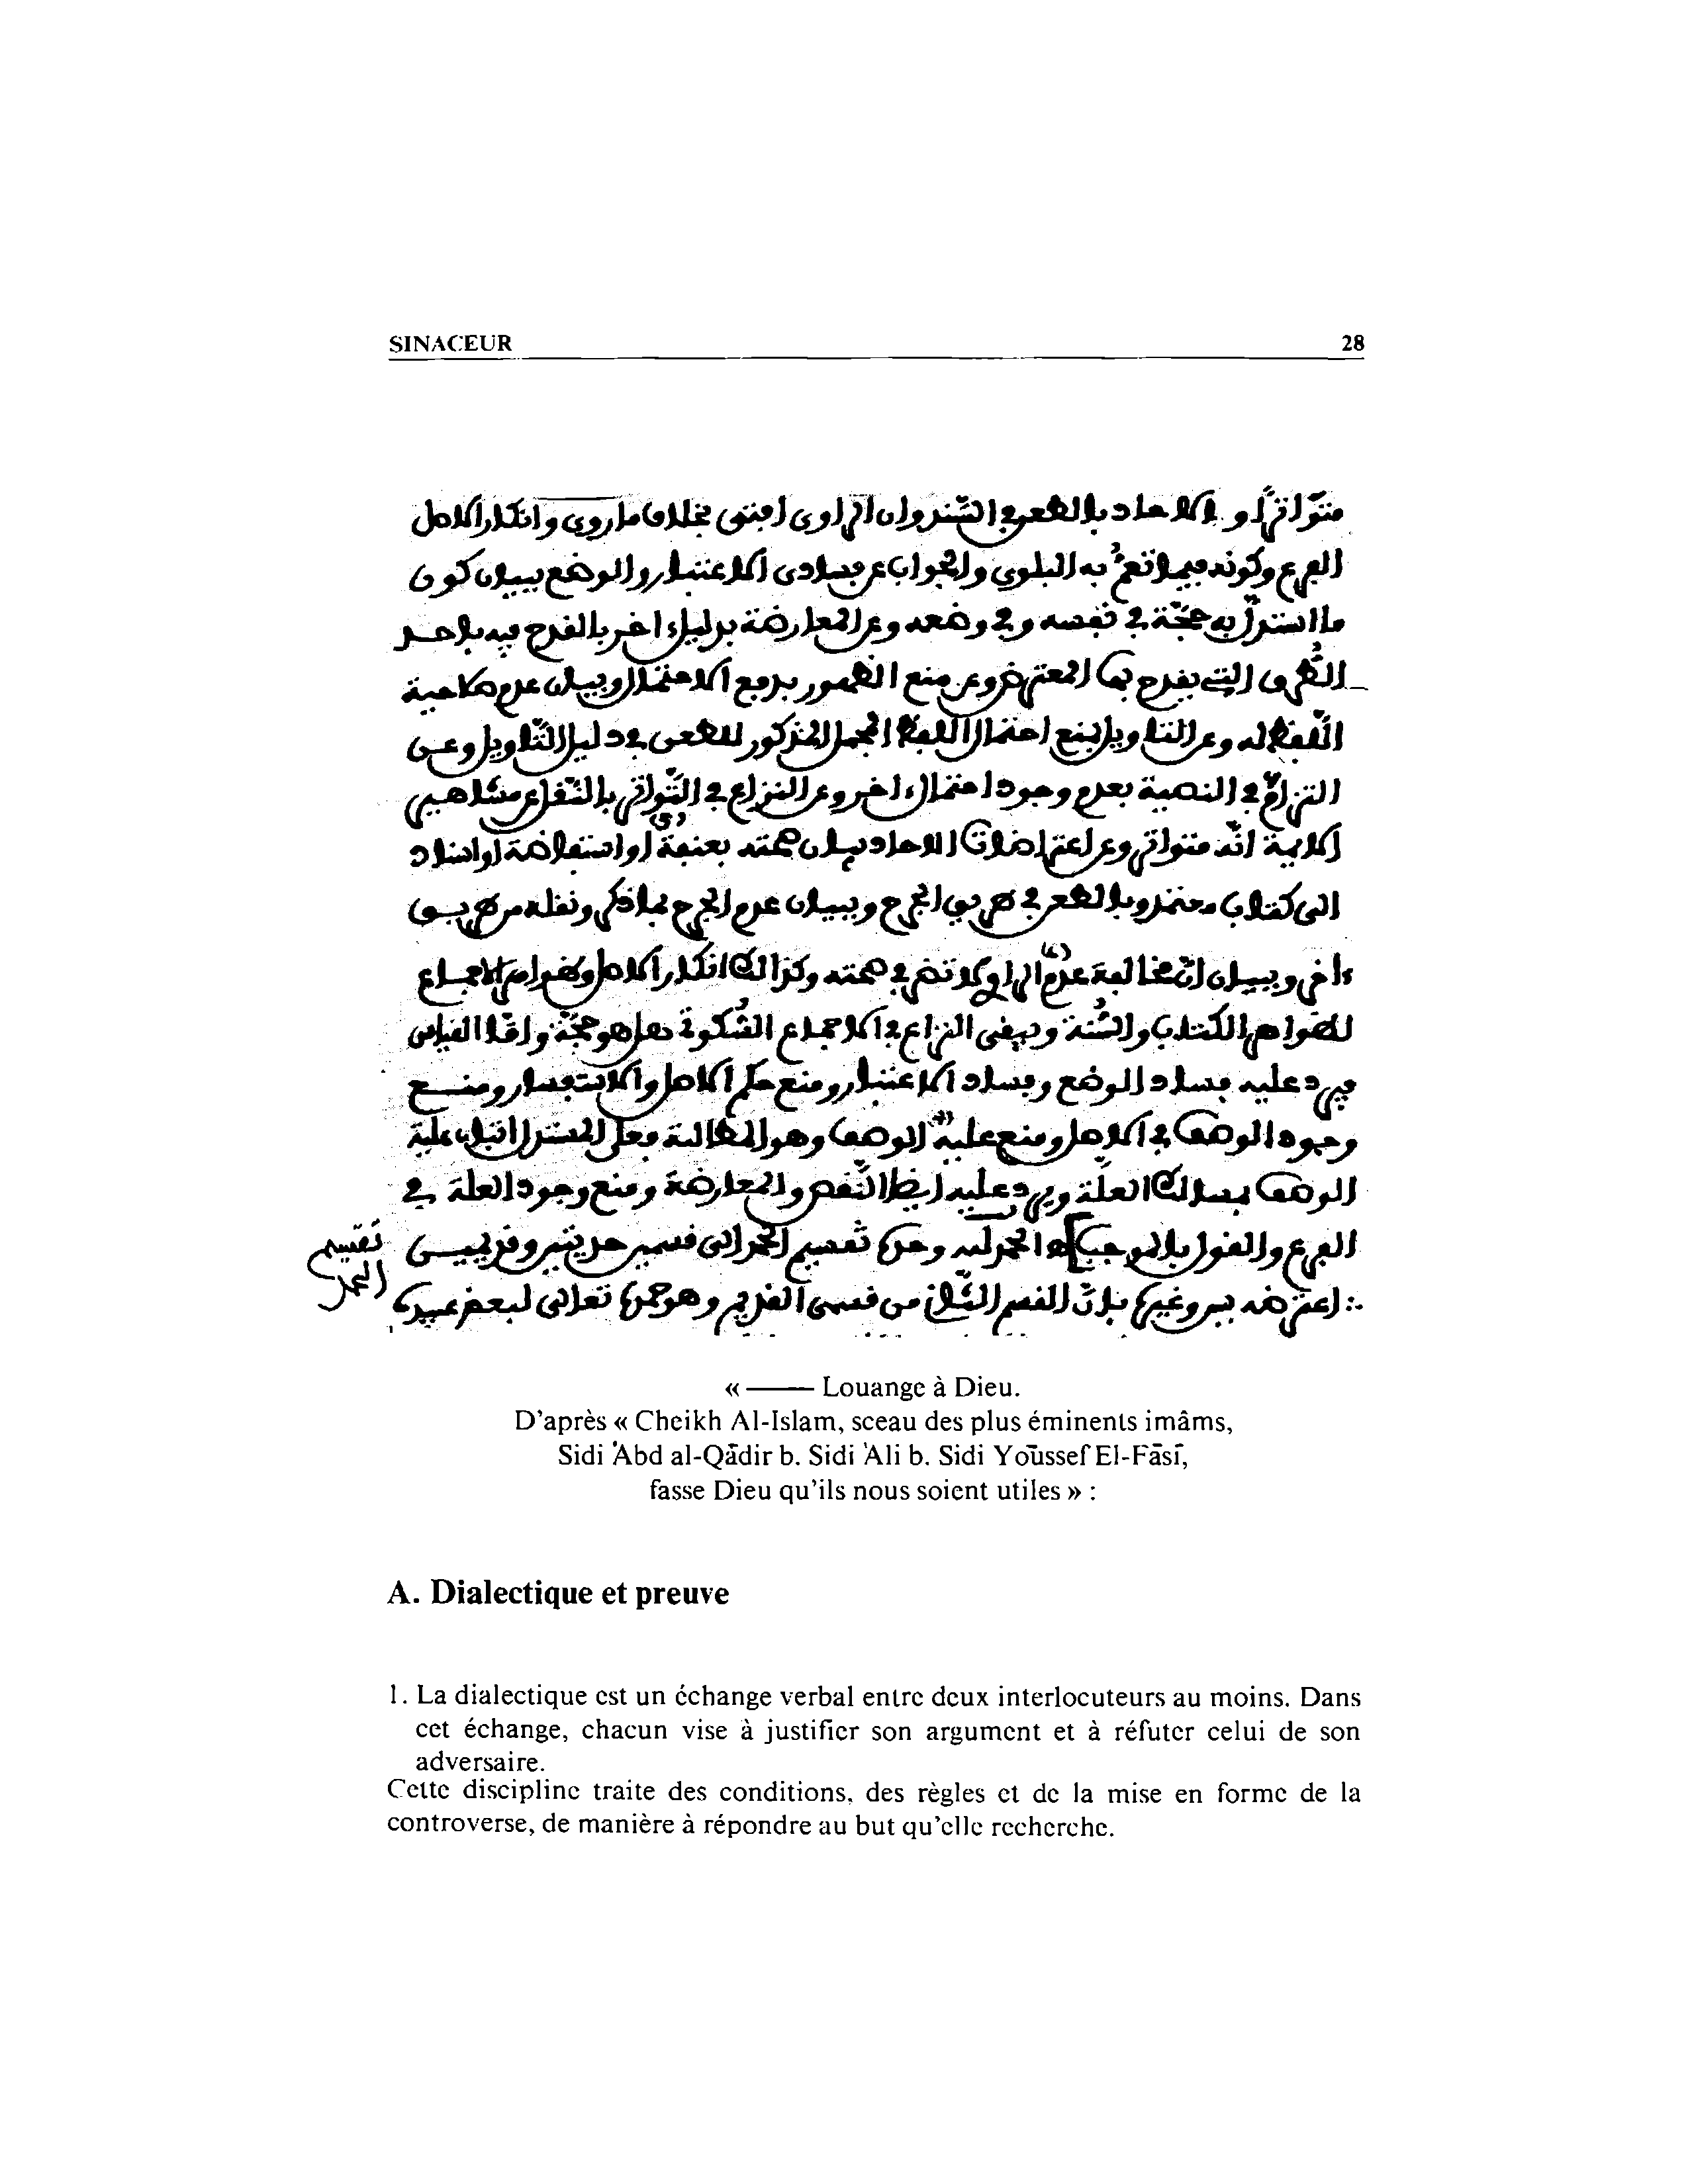 SINACEUR 28
متواترا او الاحاد بالطعن في السند وان الراوي افتى بخلاف ما روى وانكار الاصل
الفرع وكونه فيما تعم به البلوى والجواب عن فسادى الاعتبار والوضع ببيان كون
ما استدل به حجة في نفسه وفي وضعه وعن المعارضة بدليل اخر بالقدح فيه باحد
الطرق التي يقدح بها المعترض وعن منع الظهور بدفع الاحتمال وببيان عدم صلاحية
اللفظ له وعن التاويل بمنع احتمال اللفظ المجمل المذكور للطعن في دليل التاويل وعن
النزاع في النصية بعدم وجود احتمال اخر وعن النزاع في التواتر بالنقل عن مشاهير
الايمة انه متواتر وعن اعتراضات الاحاد ببيان صحته بعنعنة او استفاضة او اسناد
الى كتاب معتمد وبالطعن في طريق الجرح وببيان عدم الجرح بما ذكر ونقله من طريق
ءاخر وببيان ان مخالفة الراوي لا تضر في صحته وكذالك انكار الاصل
لظواهر الكتاب والسنة وبقى النزاع في الاجماع السكوتي هل هو حجة واما القياس
فيرد عليه فساد الوضع وفساد الاعتبار ومنع حكم الاصل والاستفسار ومنع
وجود الوصف في الاصل ومنع علية الوصف وهو المطالبة فعلى المستدل اثبات علية
الوصف بمسالك العلة ويرد عليه ايضا النقض والمعارضة ومنع وجود العلة في
الفرع والقول بالموجب الجدلية وحكى تقسيم الجدل الى قسمين حديثين وقديمين
تقسيم
الجدل
اعترضه بان القسم الثاني من قسمى القديم وهو حكى تعالى لبعض عبيده
« —— Louange à Dieu.
D’après « Cheikh Al-Islam, sceau des plus éminents imâms,
Sidi ʿAbd al-Qādir b. Sidi ʿAli b. Sidi Yoūssef El-Fāsī,
fasse Dieu qu’ils nous soient utiles » :
A. Dialectique et preuve
1. La dialectique est un échange verbal entre deux interlocuteurs au moins. Dans
cet échange, chacun vise à justifier son argument et à réfuter celui de son
adversaire.
Cette discipline traite des conditions, des règles et de la mise en forme de la
controverse, de manière à répondre au but qu’elle recherche.